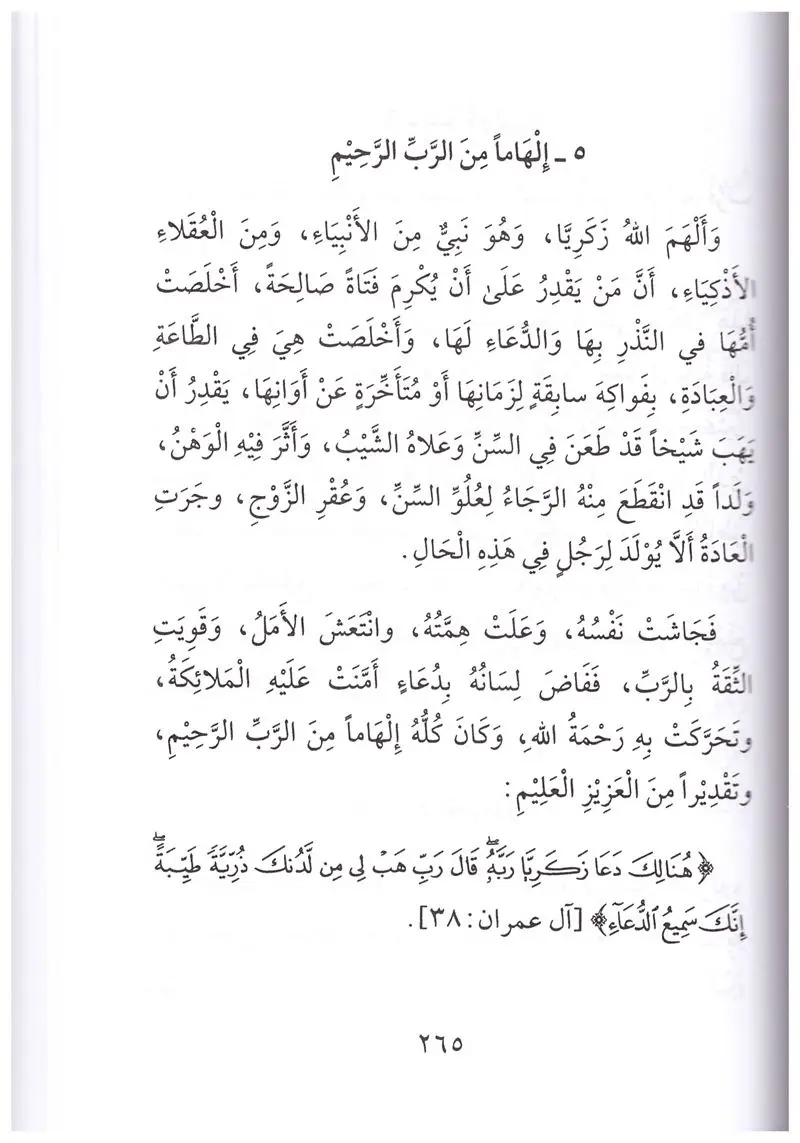 ٥ ـ إِلْهَاماً مِنَ الرَّبِّ الرَّحِيْمِ
وَأَلْهَمَ اللهُ زَكَرِيَّا، وَهُوَ نَبِيٌّ مِنَ الأَنْبِيَاءِ، وَمِنَ الْعُقَلاءِ
الأَذْكِيَاءِ، أَنَّ مَنْ يَقْدِرُ عَلَىٰ أَنْ يُكْرِمَ فَتَاةً صَالِحَةً، أَخْلَصَتْ
أُمُّهَا في النَّذْرِ بِهَا وَالدُّعَاءِ لَهَا، وَأَخْلَصَتْ هِيَ فِي الطَّاعَةِ
وَالْعِبَادَةِ، بِفَواكِهَ سابِقَةٍ لِزَمَانِهَا أَوْ مُتَأَخِّرَةٍ عَنْ أَوَانِهَا، يَقْدِرُ أَنْ
يَهَبَ شَيْخاً قَدْ طَعَنَ فِي السِّنِّ وَعَلاهُ الشَّيْبُ، وَأَثَّرَ فِيْهِ الْوَهْنُ،
وَلَداً قَدِ انْقَطَعَ مِنْهُ الرَّجَاءُ لِعُلُوِّ السِّنِّ، وَعُقْرِ الزَّوْجِ، وجَرَتِ
الْعَادَةُ أَلَّا يُوْلَدَ لِرَجُلٍ فِي هَذِهِ الْحَالِ.
فَجَاشَتْ نَفْسُهُ، وَعَلَتْ هِمَّتُهُ، وانْتَعَشَ الأَمَلُ، وَقَوِيَتِ
الثِّقَةُ بِالرَّبِّ، فَفَاضَ لِسَانُهُ بِدُعَاءٍ أَمَّنَتْ عَلَيْهِ الْمَلائِكَةُ،
وتَحَرَّكَتْ بِهِ رَحْمَةُ اللهِ، وَكَانَ كُلُّهُ إِلْهَاماً مِنَ الرَّبِّ الرَّحِيْمِ،
وتَقْدِيْراً مِنَ الْعَزِيْزِ الْعَلِيْمِ:
﴿هُنَالِكَ دَعَا زَكَرِيَّا رَبَّهُۥۖ قَالَ رَبِّ هَبۡ لِي مِن لَّدُنكَ ذُرِّيَّةٗ طَيِّبَةًۖ
إِنَّكَ سَمِيعُ ٱلدُّعَآءِ﴾ [آل عمران: ٣٨].
٢٦٥